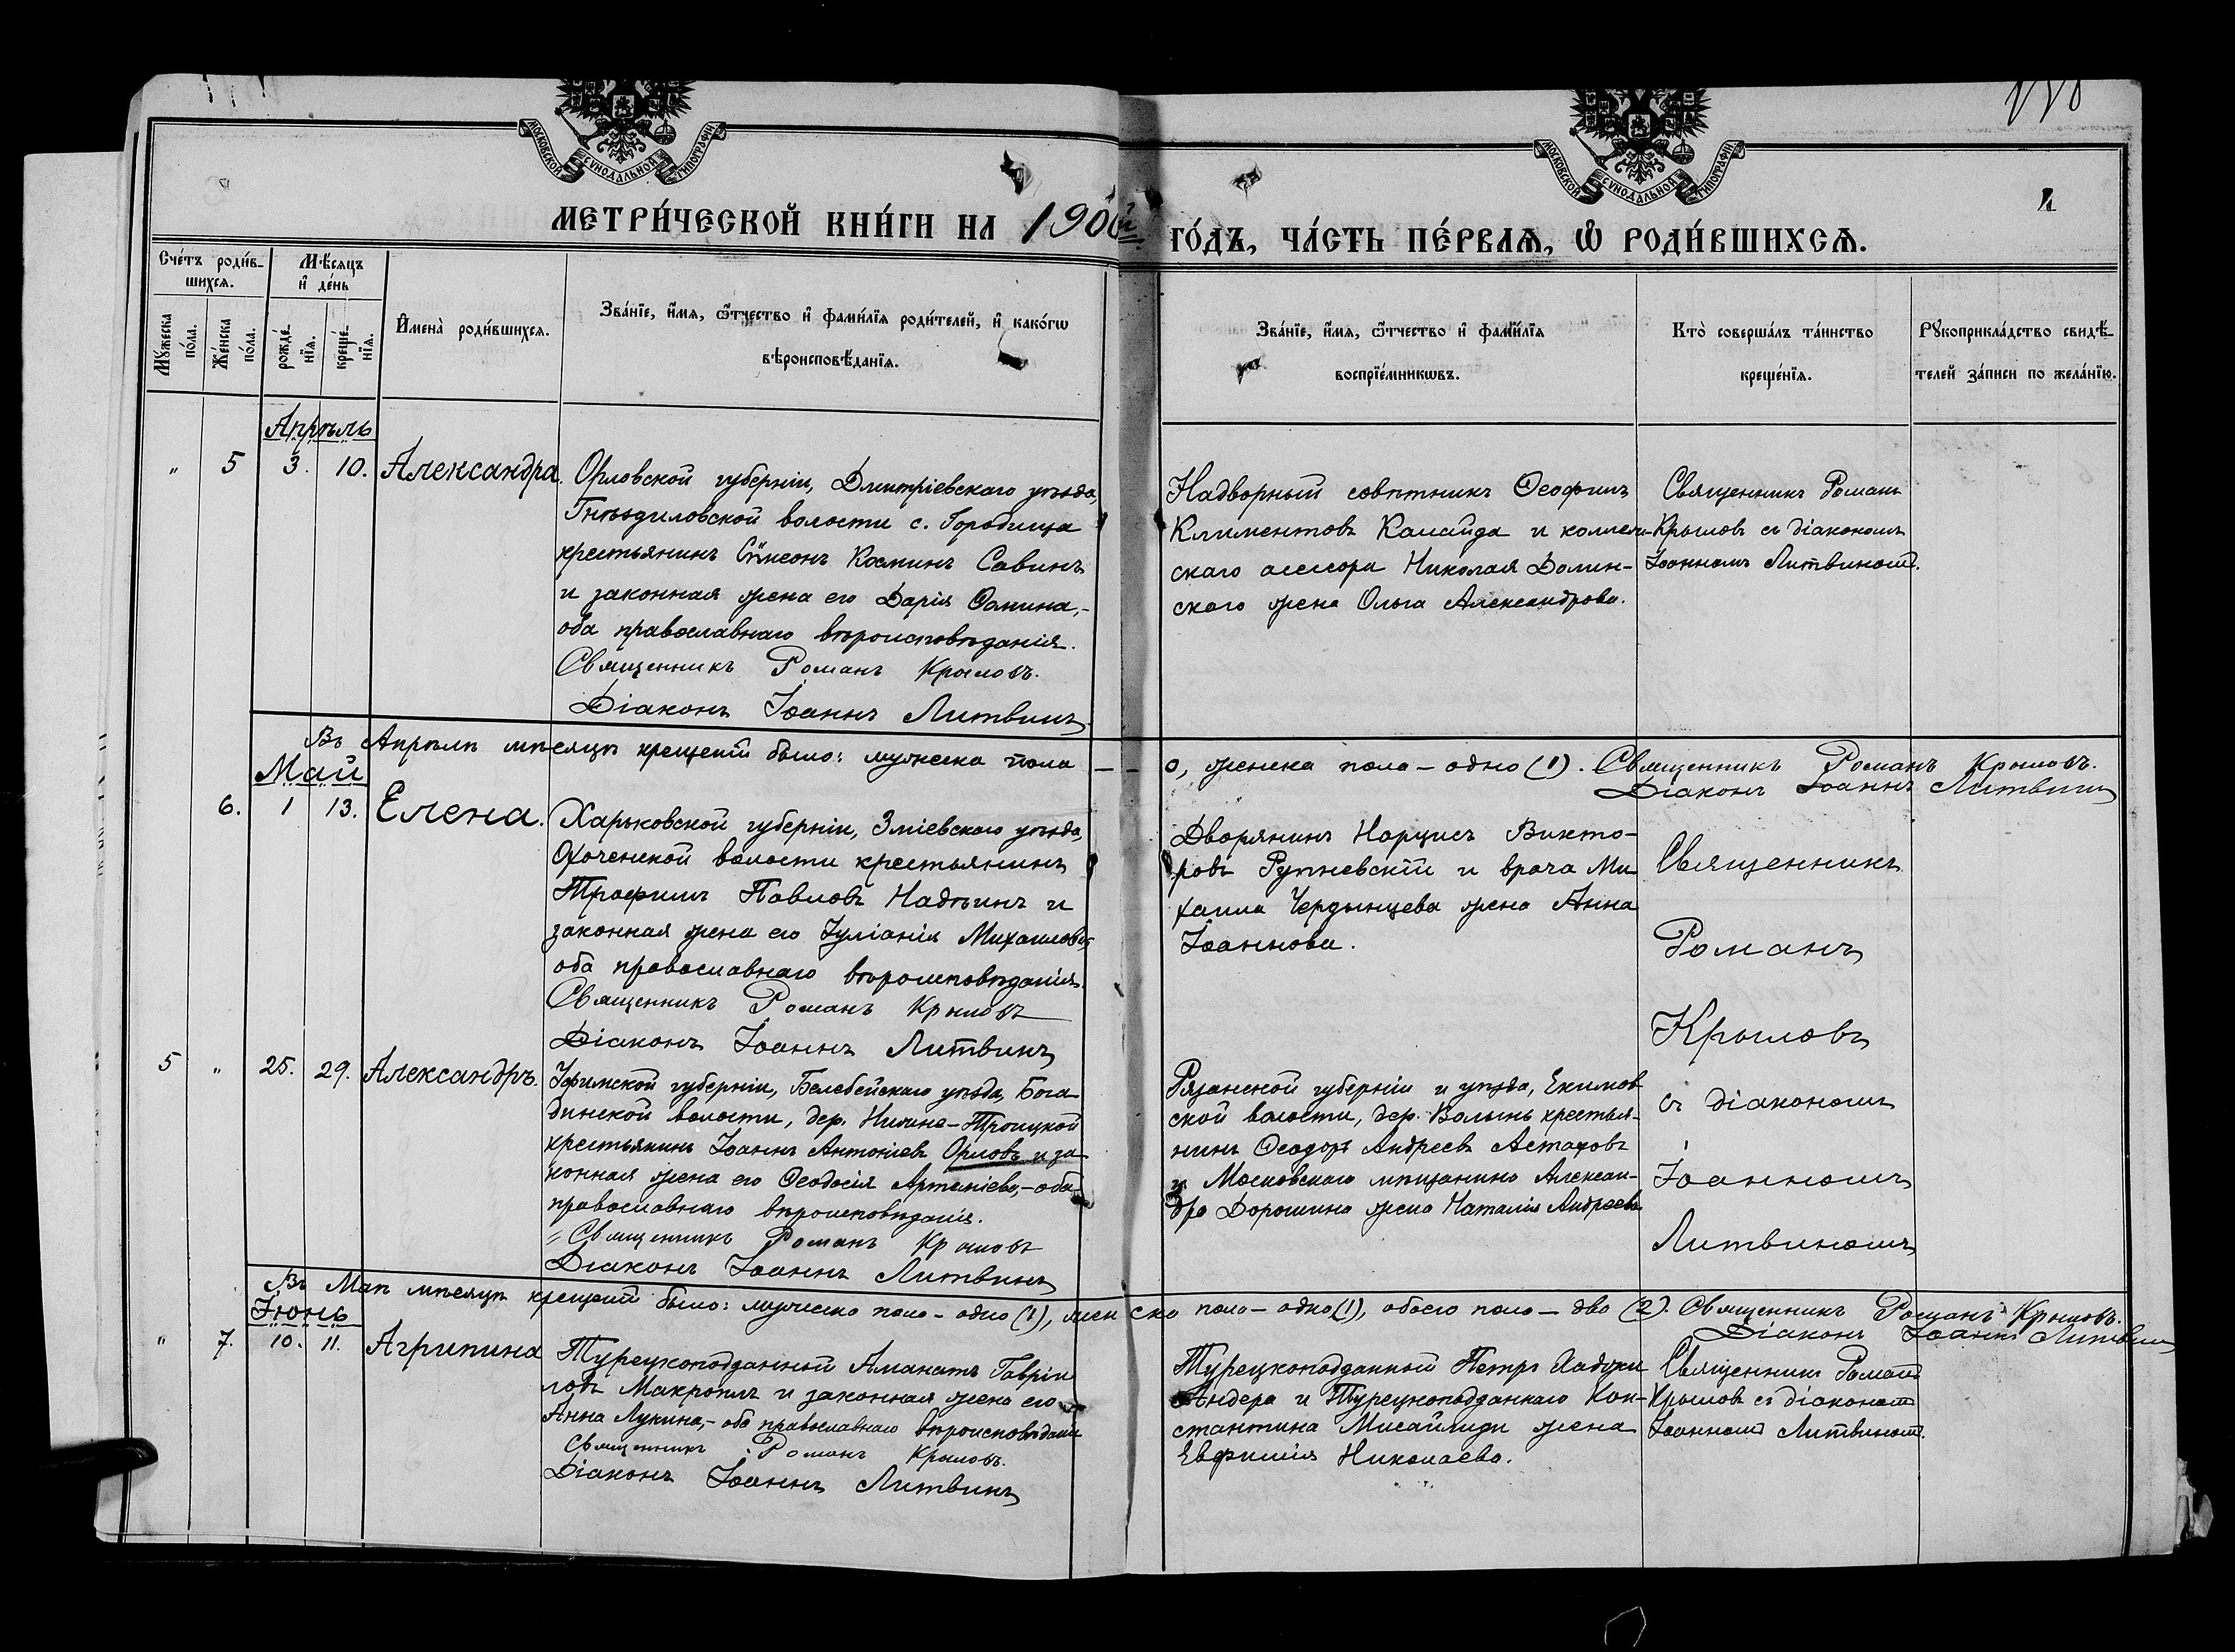 МОСКОВСКОЙ СѴНОДАЛЬНОЙ ТИПОГРАФІИ
МОСКОВСКОЙ СѴНОДАЛЬНОЙ ТИПОГРАФІИ
МЕТРИ́ЧЕСКОЙ КНИ́ГИ НА 1900й ГО́ДЪ, ЧА́СТЬ ПЕ́РВАѦ, Ѡ҆ РОДИ́ВШИХСѦ.
Сче́тъ роди́в-
шихсѧ.
Мѣ́сѧцъ
и҆ де́нь
Мꙋ́жеска
по́ла.
Же́нска
по́ла.
рожде́-
нїѧ.
креще́-
нїѧ.
И҆мена̀ роди́вшихсѧ.
Зва́нїе, и҆́мѧ, ѻ҆́тчество и҆ фами́лїѧ роди́телей, и҆ како́гѡ
вѣроисповѣ́данїѧ.
Зва́нїе, и҆́мѧ, ѻ҆́тчество и҆ фами́лїѧ
воспрїе́мникѡвъ.
Кто̀ соверша́лъ та́инство
креще́нїѧ.
Рꙋкоприкла́дство свидѣ́-
телей за́писи по жела́нїю.
Апрѣль
„ 5 3. 10. Александра.
Орловской губерніи, Дмитріевскаго уѣзда,
Гнѣздиловской волости с. Городища
крестьянинъ Сѵмеонъ Косминъ Савинъ
и законная жена его Дарія Фомина,-
оба православнаго вѣроисповѣданія.
Священникъ Романъ Крыловъ.
Діаконъ Іоаннъ Литвинъ
Надворный совѣтникъ Ѳеофилъ
Климентовъ Калайда и коллеж-
скаго асессора Николая Долин-
скаго жена Ольга Александрова.
Священникъ Романъ
Крыловъ съ діакономъ
Іоанномъ Литвиномъ.
Въ Апрѣлѣ мѣсяцѣ крещеній было: мужеска пола — - 0, женска пола - одно (1). Священникъ Романъ Крыловъ.
Діаконъ Іоаннъ Литвинъ
Май
6. 1 13. Елена.
Харьковской губерніи, Зміевскаго уѣзда,
Охоченской волости крестьянинъ
Трофимъ Павловъ Надѣинъ и
законная жена его Іуліанія Михаилова,
оба православнаго вѣроисповѣданія.
Священникъ Романъ Крыловъ
Діаконъ Іоаннъ Литвинъ
Дворянинъ Нарцисъ Викто-
ровъ Рупневскій и врача Ми-
хаила Чердынцева жена Анна
Іоаннова.
Священникъ
Романъ
Крыловъ
съ діакономъ
Іоанномъ
Литвиномъ
5 „ 25. 29. Александръ.
Уфимской губерніи, Белебейскаго уѣзда, Бога-
динской волости, дер. Нижне-Троицкой
крестьянинъ Іоаннъ Антоніевъ Орловъ и за-
конная жена его Ѳеодосія Артеміева,-оба
православнаго вѣроисповѣданія.
Священникъ Романъ Крыловъ
Діаконъ Іоаннъ Литвинъ
Рязанской губерніи и уѣзда, Екимов
ской волости, дер. Волынь крестья-
нинъ Ѳеодоръ Андреевъ Астаховъ
и Московскаго мѣщанина Алексан-
дра Дорошина жена Наталія Андреева
Въ Маѣ мѣсяцѣ крещеній было: мужеска пола - одно (1), женска пола - одно (1), обоего пола - два (2). Священникъ Романъ Крыловъ.
Діаконъ Іоаннъ Литвинъ
Іюнь
„ 7. 10. 11. Агрипина
Турецкоподданный Аманатъ Гавріи
ловъ и законная жена его
Анна Лукина,- оба православнаго вѣроисповѣданія
Священникъ Романъ Крыловъ.
Діаконъ Іоаннъ Литвинъ
Турецкоподданный Петръ Хаджи
Андера и Турецкоподданнаго Кон-
стантина Мисайлиди жена
Евфимія Николаева.
Священникъ Романъ
Крыловъ съ діакономъ
Іоанномъ Литвиномъ.